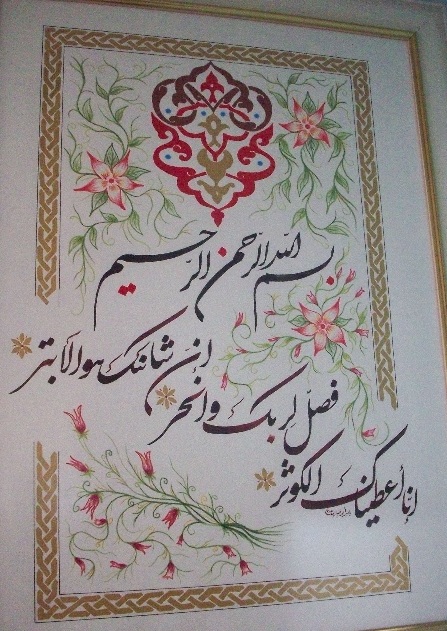 بسم الله الرحمن الرحیم
إنا أعطیناک الکوثر
فصل لربک وانحر
إن شانئک هو الأبتر